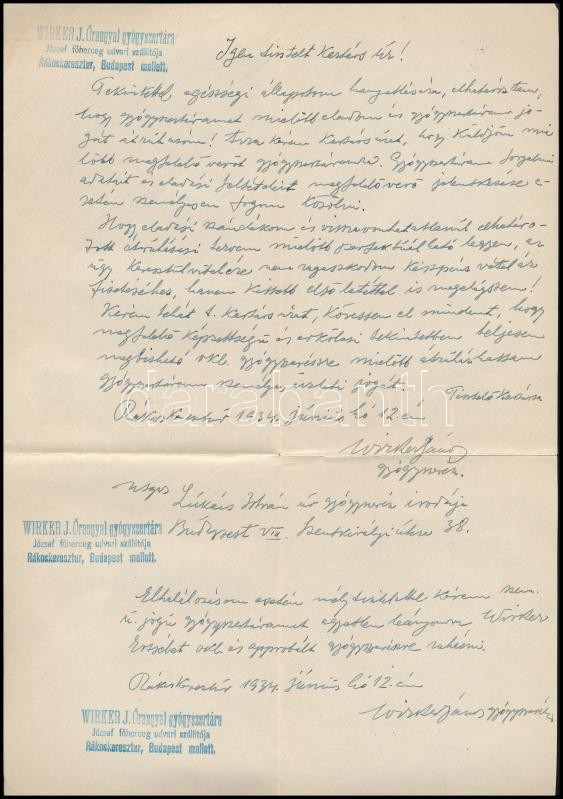 WIRKER J. Őrangyal gyógyszertára
József főherceg udvari szállítója
Rákoskeresztur, Budapest mellett.
Igen tisztelt Kartárs úr!
Tekintettel egészségi állapotom hanyatlására, elhatároztam,
hogy gyógyszertáramat mielőbb eladom és gyógyszertáram jo-
gát átruházom! Arra kérem Kartárs urat, hogy küldjön mi-
előbb megfelelő vevőt gyógyszertáramra. Gyógyszertáram forgalmi
adatait és eladási feltételeit megfelelő vevő jelentkezése e-
setén személyesen fogom közölni.
Hogy eladási szándékom és visszavonhatatlanúl elhatáro-
zott átruházási tervem mielőbb perfektuálható legyen, az
ügy keresztülvitelére nem ragaszkodom készpénz vételár
fizetéséhez, hanem kisebb első letéttel is megelégszem!
Kérem tehát t. Kartárs urat, kövessen el mindent, hogy
megfelelő képzettségű és erkölcsi tekintetben teljesen
megbízható okl. gyógyszerészre mielőbb átruházhassam
gyógyszertáram személyes üzleti jogát.
Tisztelő Kartársa
Rákoskeresztúr 1934. június hó 12-én
Wirker János
gyógyszerész.
Lukács István úr gyógyszerész irodája
Budapest VIII. Szentkirályi utca 38.
WIRKER J. Őrangyal gyógyszertára
József főherceg udvari szállítója
Rákoskeresztur, Budapest mellett.
Elhalálozásom esetén mély tisztelettel kérem szem.
ü. jogú gyógyszertáramat egyetlen leányomra Wirker
Erzsébet okl. és approbált gyógyszerészre ruházni.
Rákoskeresztúr 1934. június hó 12-én
Wirker János gyógyszerész
WIRKER J. Őrangyal gyógyszertára
József főherceg udvari szállítója
Rákoskeresztur, Budapest mellett.
darabanth